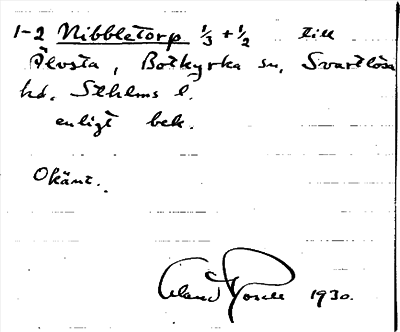 1-2 Nibbletorp 1/3 + 1/2 till
Älvsta, Botkyrka sn, Svartlösa
hd, Sthlms l.
enligt bek.
Okänt.
1930.